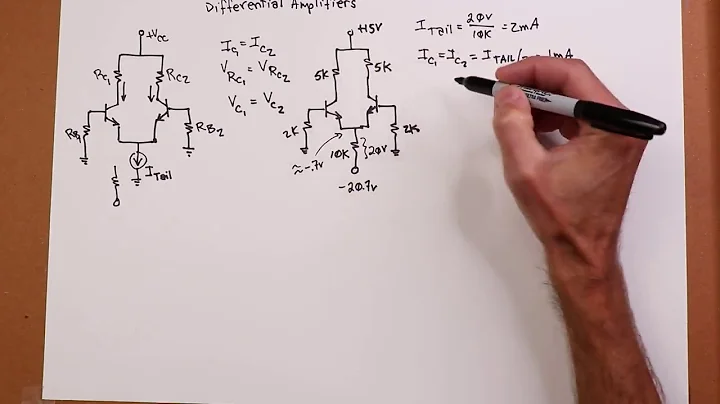 Differential Amplifiers
+Vcc
RC1
RC2
RB1
RB2
ITail
IC1 = IC2
VRC1 = VRC2
VC1 = VC2
+15V
5K
5K
2K
2K
10K
20V
≈ -.7V
-20.7V
ITail = 20V / 10K = 2mA
IC1 = IC2 = ITAIL/ 1mA